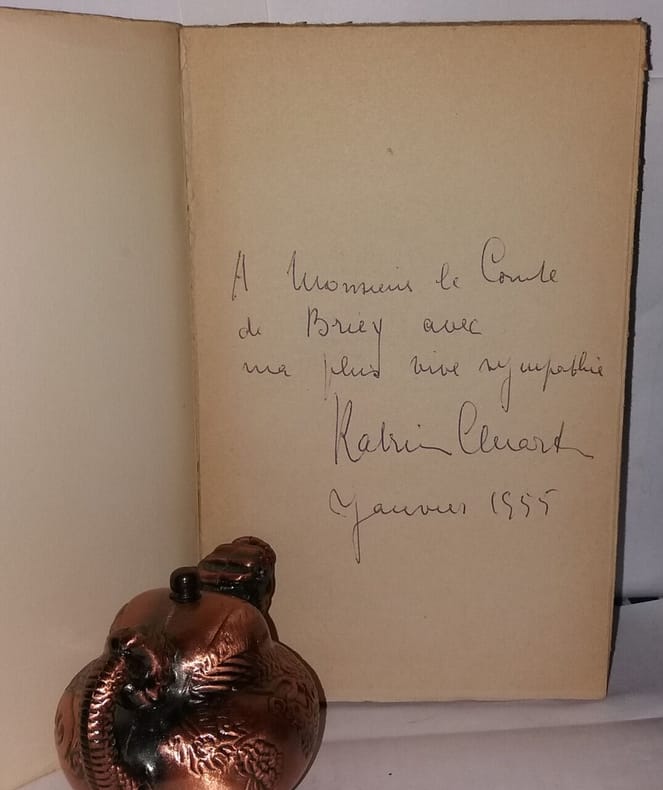 A Monsieur le Comte
de Briey avec
ma plus vive sympathie
Katrin
Janvier 1955